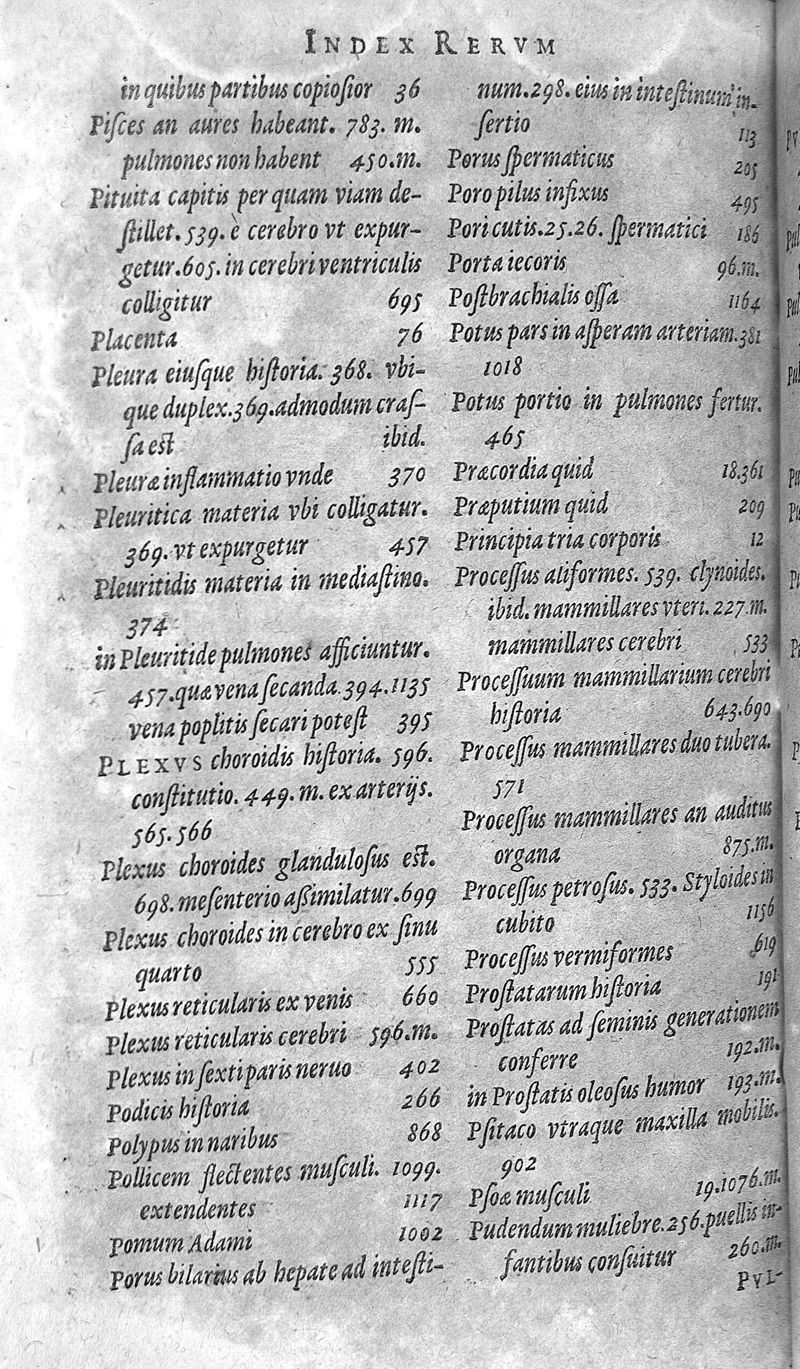 INDEX RERVM
in quibus partibus copioſior 36
Piſces an aures habeant. 783. m.
pulmones non habent 450.m.
Pituita capitis per quam viam de-
ſtillet. 539. è cerebro vt expur-
getur. 605. in cerebri ventriculis
colligitur 695
Placenta 76
Pleura eiuſque hiſtoria. 368. vbi-
que duplex. 369. admodum craſ-
ſa eſt ibid.
Pleuræ inflammatio vnde 370
Pleuritica materia vbi colligatur.
369. vt expurgetur 457
Pleuritidis materia in mediaſtino.
374
in Pleuritide pulmones afficiuntur.
457. quæ vena ſecanda. 394. 1135
vena poplitis ſecari poteſt 395
PLEXVS choroidis hiſtoria. 596.
conſtitutio. 449. m. ex arterijs.
565. 566
Plexus choroides glanduloſus eſt.
698. meſenterio aſſimilatur. 699
Plexus choroides in cerebro ex ſinu
quarto 555
Plexus reticularis ex venis 660
Plexus reticularis cerebri 596.m.
Plexus in ſexti paris neruo 402
Podicis hiſtoria 266
Polypus in naribus 868
Pollicem flectentes muſculi. 1099.
extendentes 1117
Pomum Adami 1002
Porus bilarius ab hepate ad inteſti-
num. 298. eius in inteſtinum in-
ſertio 113
Porus ſpermaticus 205
Poro pilus infixus 495
Pori cutis. 25. 26. ſpermatici 186
Porta iecoris 96.m.
Poſtbrachialis oſſa 1164
Potus pars in aſperam arteriam. 381
1018
Potus portio in pulmones fertur.
465
Præcordia quid 18.361
Præputium quid 209
Principia tria corporis 12
Proceſſus aliformes. 539. clynoides.
ibid. mammillares vteri. 227.m.
mammillares cerebri 533
Proceſſuum mammillarium cerebri
hiſtoria 643.690
Proceſſus mammillares duo tubera.
571
Proceſſus mammillares an auditus
organa 875.m.
Proceſſus petroſus. 533. Styloides in
cubito 1156
Proceſſus vermiformes 619
Proſtatarum hiſtoria 191
Proſtatas ad ſeminis generationem
conferre 192.m.
in Proſtatis oleoſus humor 193.m.
Pſitaco vtraque maxilla mobilis.
902
Pſoæ muſculi 19.1076.m.
Pudendum muliebre. 256. puellis in-
fantibus conſuitur 260.m.
PVL-